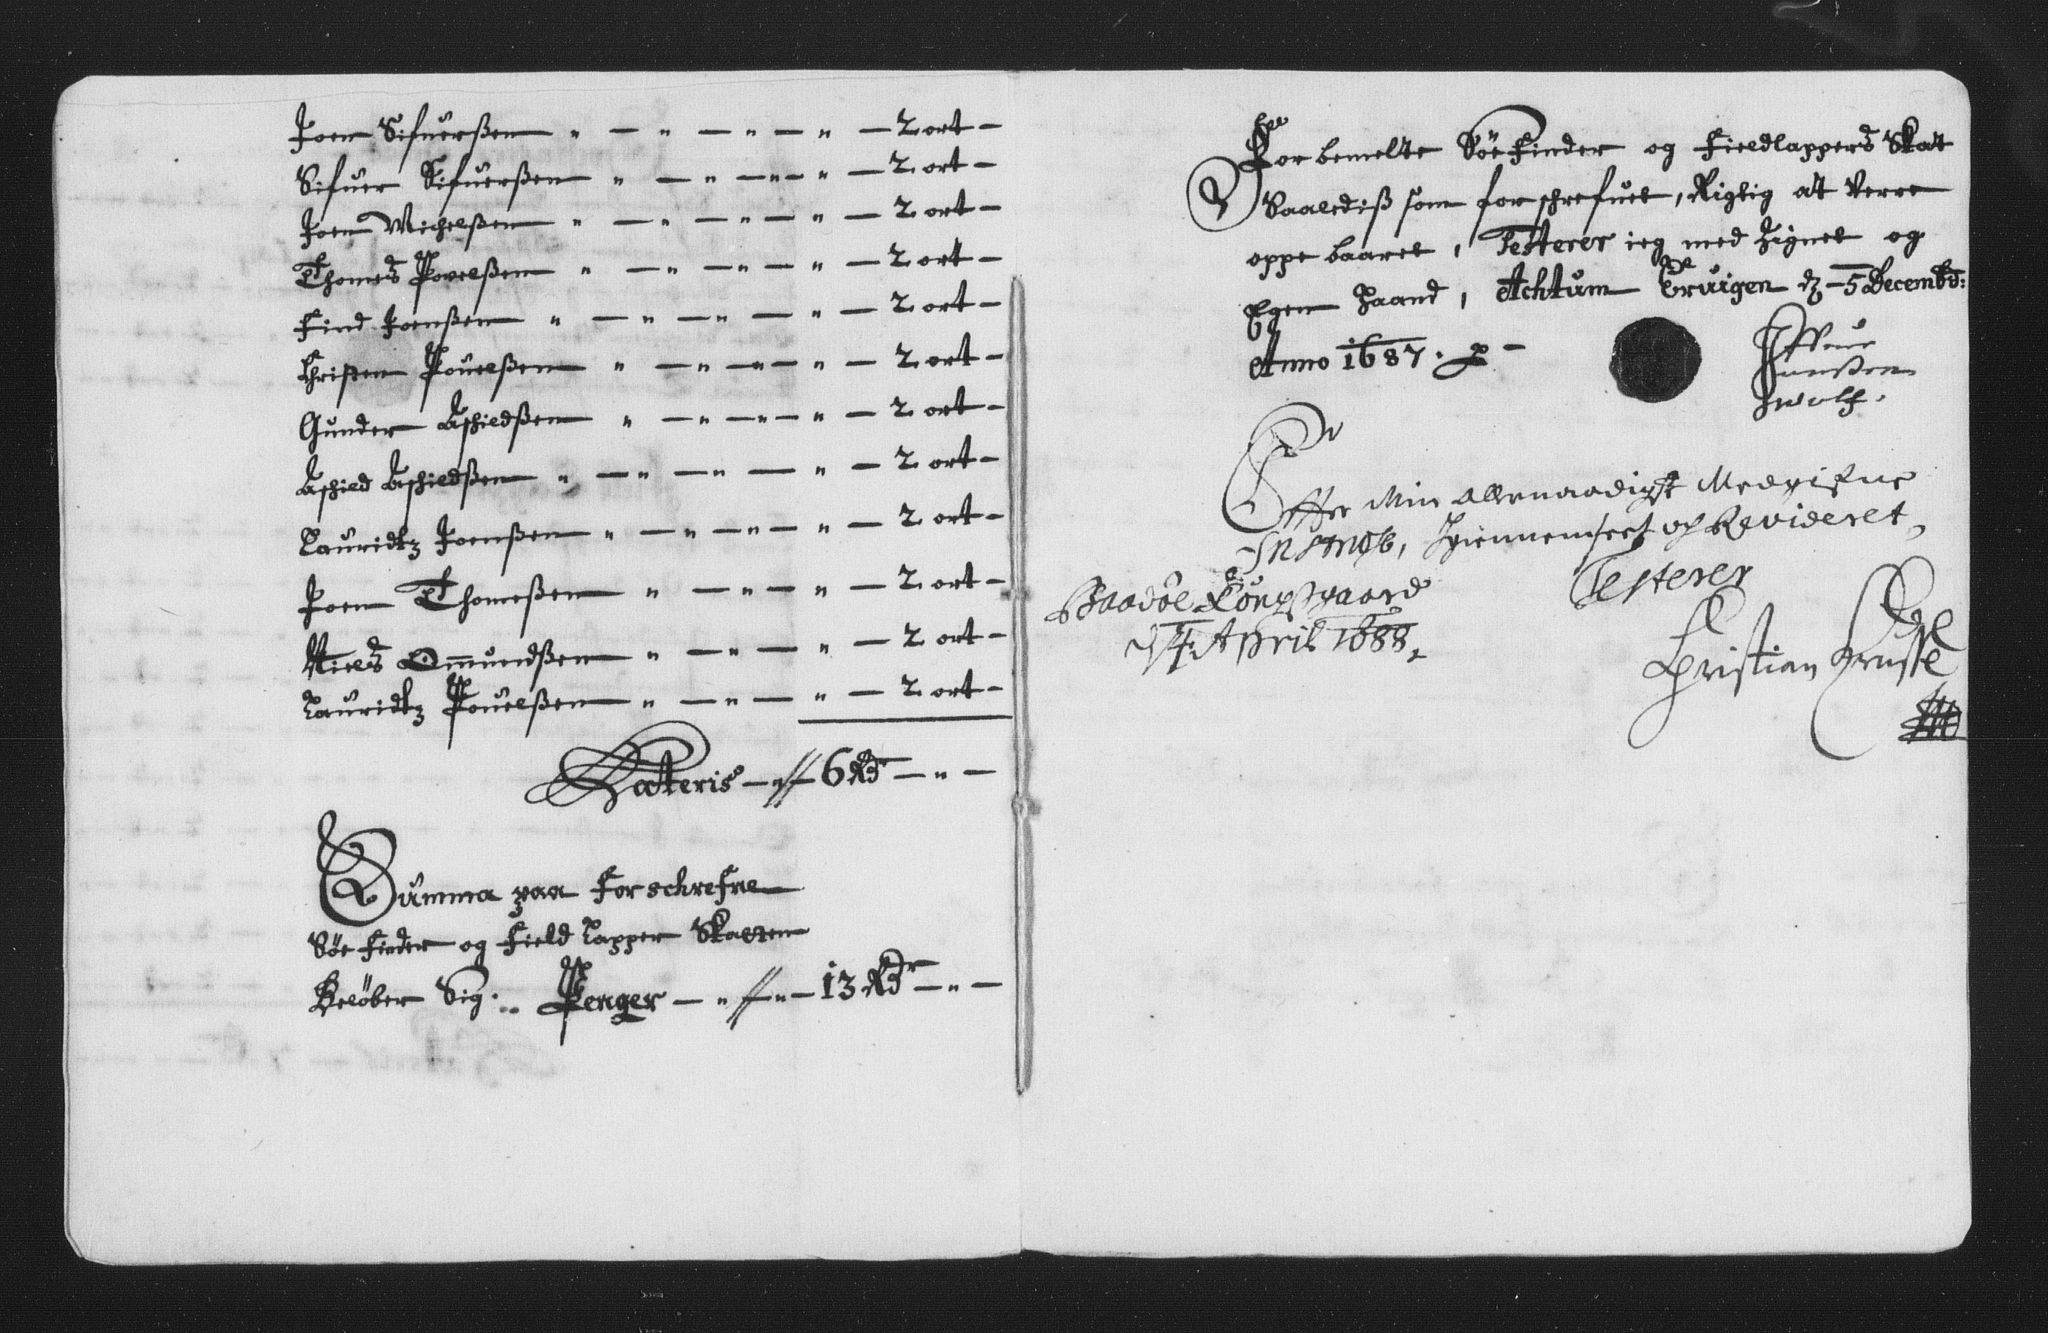 Joen Sifuerßen " — " — " — " — 2 ort —
Sifuer Sifuerßen " — " — " — " — 2 ort —
Joen Michelßen " — " — " — " — 2 ort —
Thomes Povelßen " — " — " — " — 2 ort —
Find Joenßen " — " — " — " — 2 ort —
Christen Pouelßen " — " — " — " — 2 ort —
Gunder Aßhieldßen " — " — " — " — 2 ort —
Aßhield Aßhieldßen " — " — " — " — 2 ort —
Lauridtz Joenßen " — " — " — " — 2 ort —
Joen Thomeßen " — " — " — " — 2 ort —
Niels Omundßen " — " — " — 2 ort —
Lauridtz Pouelßen " — " — " — 2 ort —
Lateris — " — 6 Rdr — " —
Summa paa Forschrefne
Söe finder og Field Lapper Skatten
Belöber Sig. Penger — " — " — 13 Rdr — " —
For bemelte Söe Finder og Fieldlappers Skat
Saalediß som forschrefuet, Rigtig at Verre
oppe baaret, Testerer ieg med Zignet og
Egen Haand, Actum Eruigen dz 5 Decembr:
Anno 1687.
Iffuer
Jenßen
Wolf.
Effter Min Allernaadigst Medgifne
Instrux, Igiennemseet og Revideret,
Testerer
Baadöe Kongsgaard
d 4 April 1688,
Christian Kruse